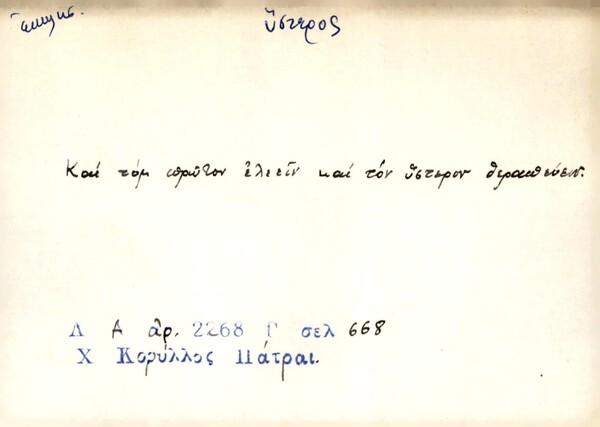 ὕστερος
Καί τόμ πρῶτον ἐλεεῖν καί τόν ὕστερον θεραπεύειν.
Λ Α ἀρ. 2268 Γ σελ 668
Χ Κορύλλος Πάτραι.